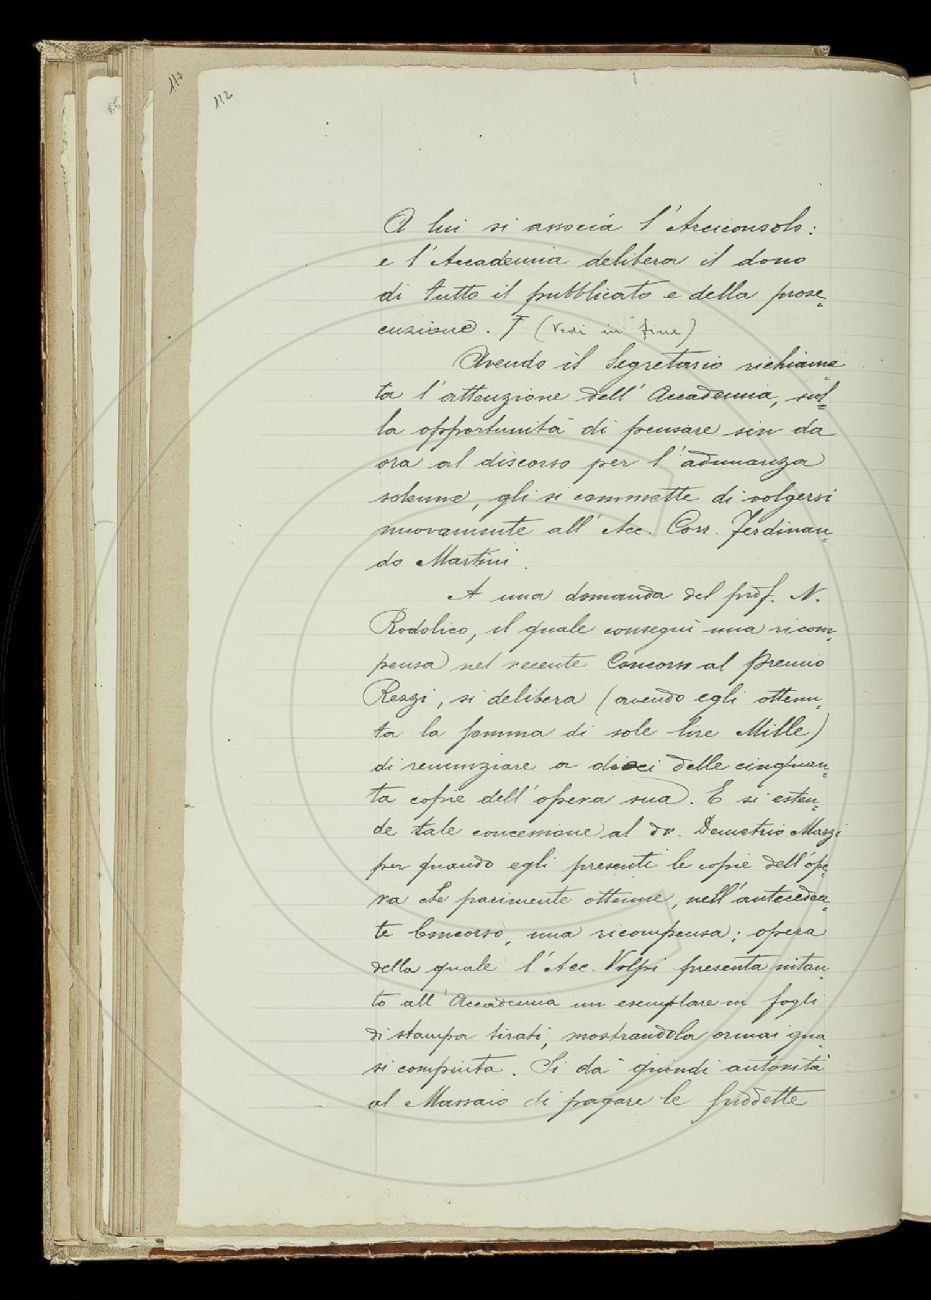 113
112
A lui si associa l'Arciconsolo:
e l'Accademia delibera il dono
di tutto il pubblicato e della prose-
cuzione. † (Vedi in fine)
Avendo il Segretario richiama-
ta l'attenzione dell'Accademia, sul-
la opportunità di pensare sin da
ora al discorso per l'adunanza
solenne, gli si commette di volgersi
nuovamente all'Acc. Corr. Ferdinan-
do Martini.
A una domanda del prof. N.
Rodolico, il quale conseguì una ricom-
pensa nel recente Concorso al Premio
Rezzi, si delibera (avendo egli ottenu-
ta la somma di sole lire Mille)
di renunziare a dieci delle cinquan-
ta copie dell'opera sua. E si esten-
de tale concessione al Dr. Demetrio Marzi
per quando egli presenti le copie dell'ope-
ra che parimente ottenne, nell'anteceden-
te Concorso, una ricompensa; opera
della quale l'Acc. Volpi presenta intan-
to all'Accademia un esemplare in fogli
di stampa tirati, mostrandola ormai qua-
si compiuta. Si dà quindi autorità
al Massaio di pagare le suddette